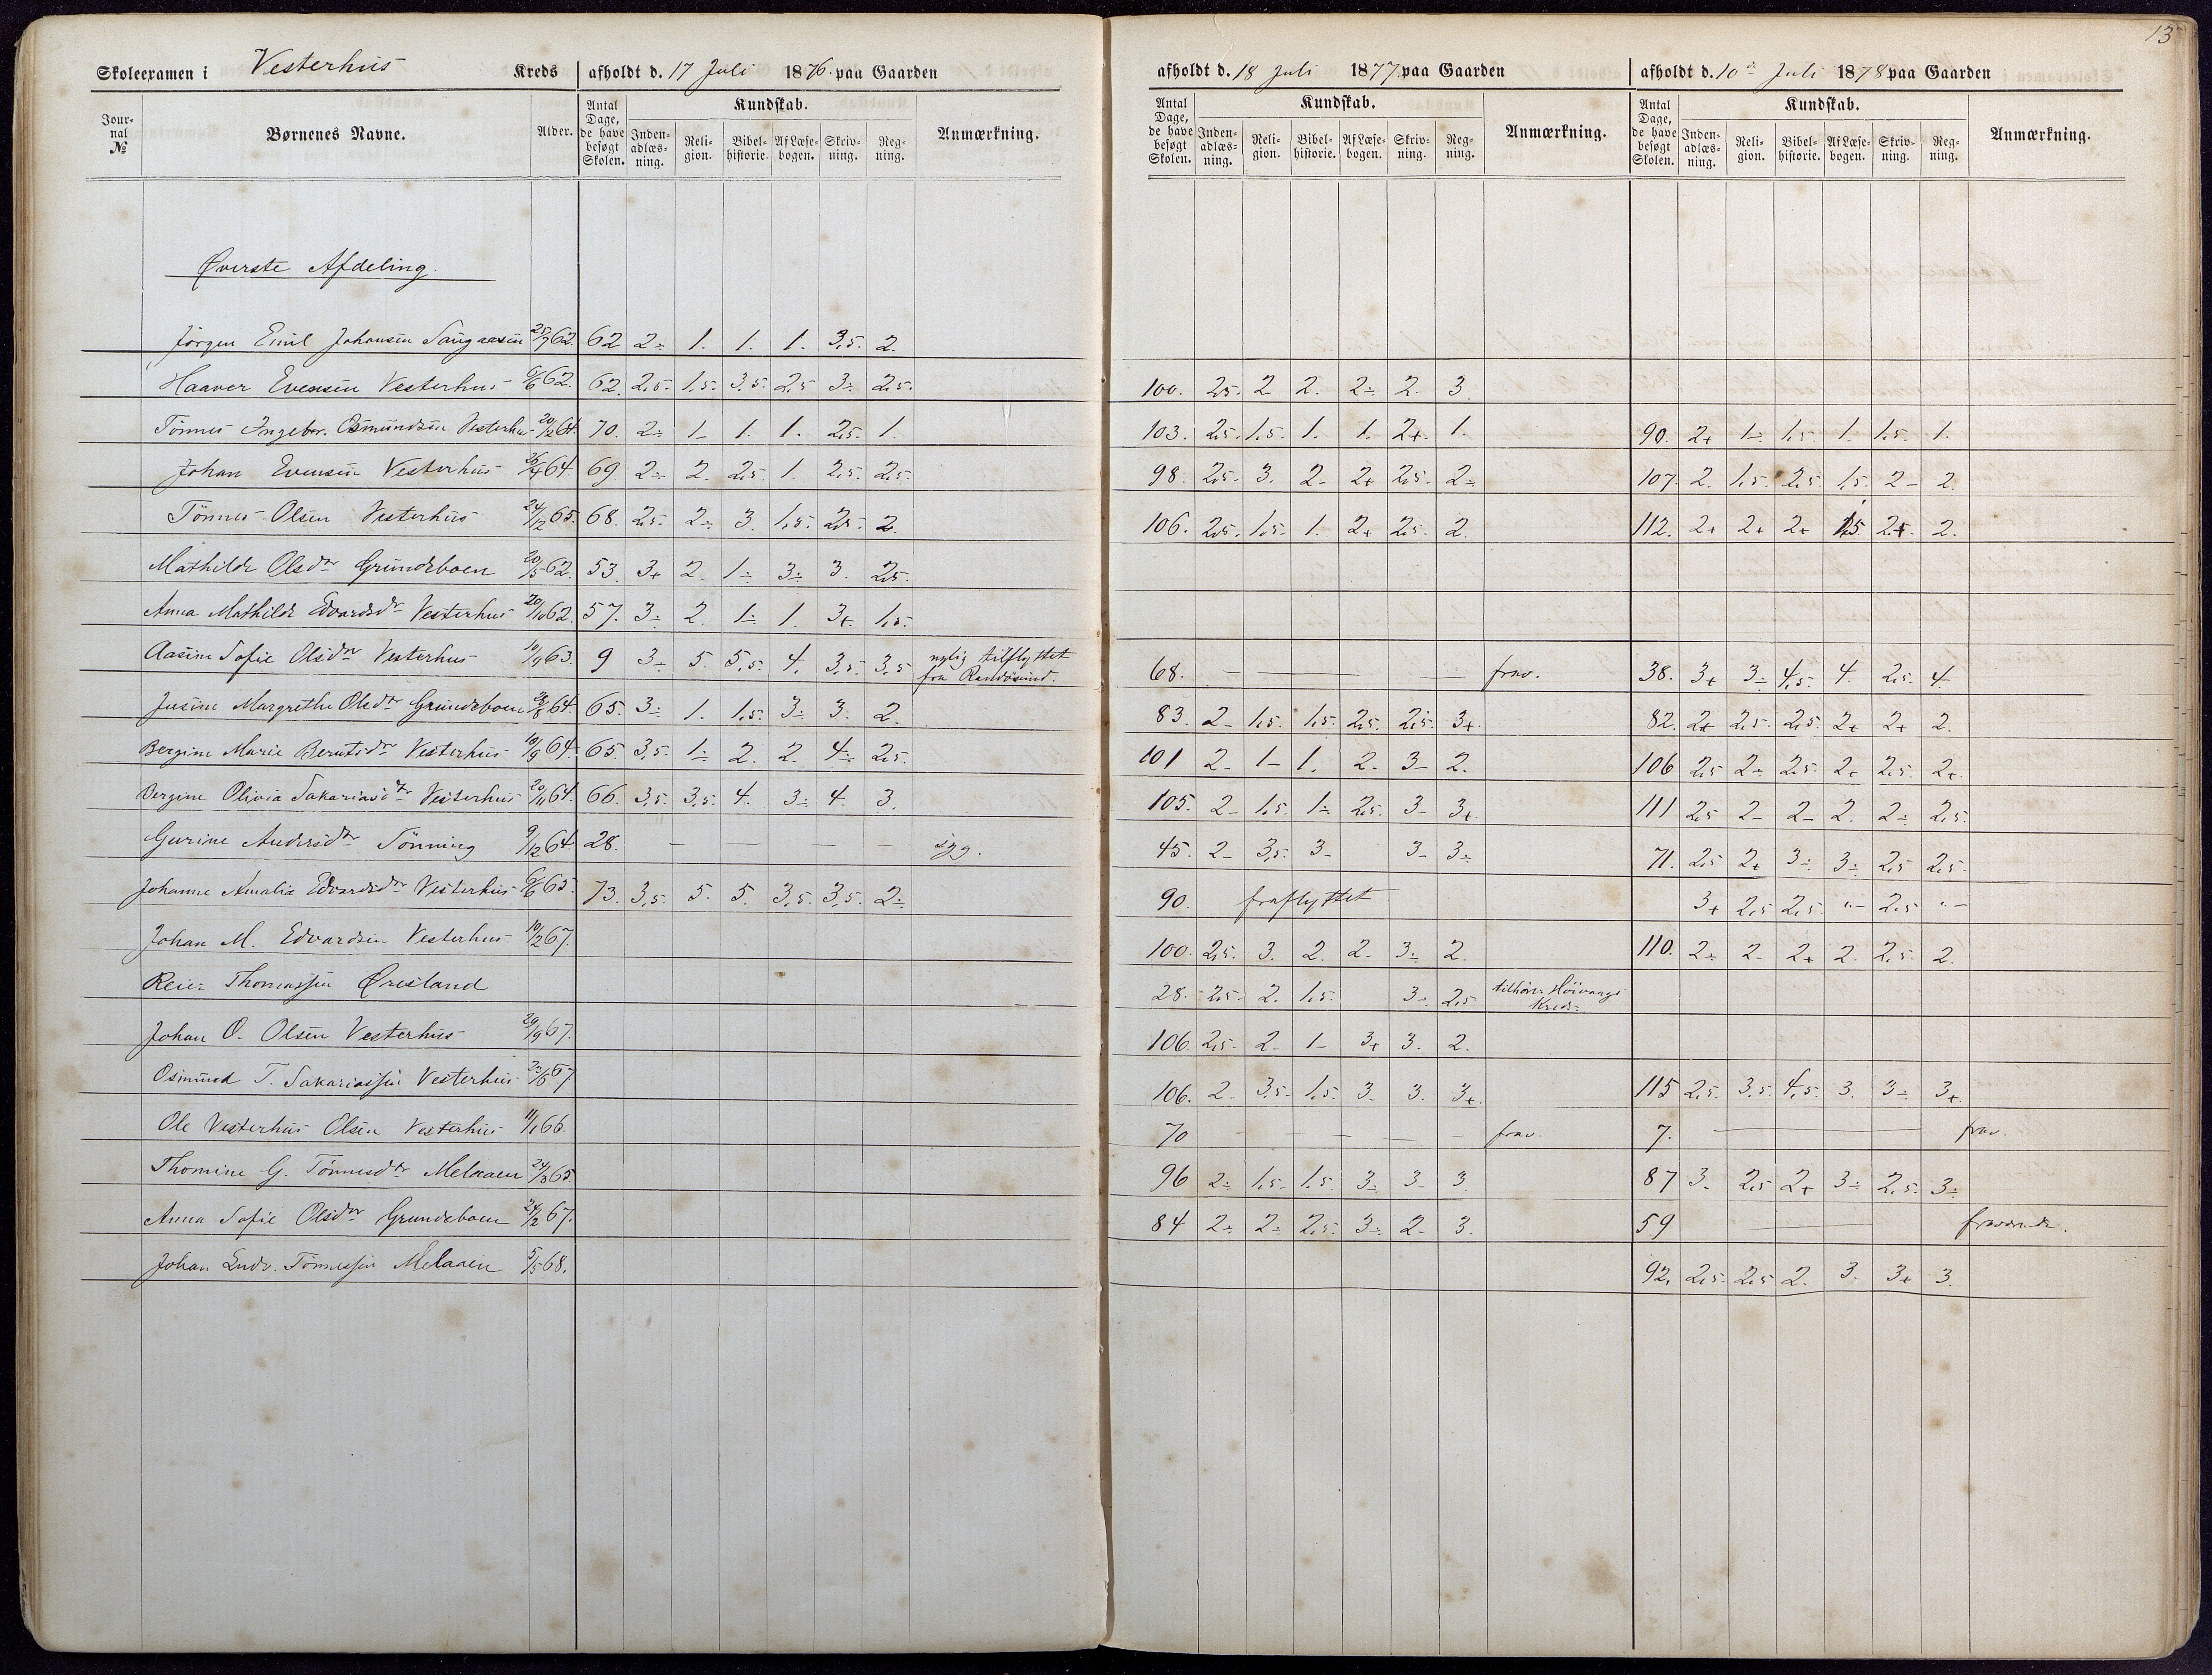 13
Skoleexamen i Vesterhus Kreds afholdt d. 17 Juli 1876 paa Gaarden
afholdt d. 18 Juli 1877 paa Gaarden
afholdt d. 10de Juli 1878 paa Gaarden
Journal No Børnenes Navne. Alder. Antal Dage, de have besøgt Skolen. Kundskab. Indenadlæsning. Religion. Bibelhistorie. Af Læsebogen. Skrivning. Regning. Anmærkning.
Antal Dage, de have besøgt Skolen. Kundskab. Indenadlæsning. Religion. Bibelhistorie. Af Læsebogen. Skrivning. Regning. Anmærkning.
Antal Dage, de have besøgt Skolen. Kundskab. Indenadlæsning. Religion. Bibelhistorie. Af Læsebogen. Skrivning. Regning. Anmærkning.
Øverste Afdeling.
Jörgen Emil Johansen 25/7 62. 62 2÷ 1. 1. 1. 3,5. 2.
Haaver Evensen Vesterhus 6/6 62. 62. 2,5. 1,5. 3,5. 2,5 3÷ 2,5. 100. 2,5. 2 2. 2÷ 2. 3.
Tönnes Ingebr. Osmundsen Vesterhus 20/12 64. 70. 2÷ 1- 1. 1. 2,5. 1. 103. 2,5. 1,5. 1. 1. 2+ 1. 90. 2+ 1÷ 1,5. 1. 1,5. 1.
Johan Evensen Vesterhus 26/4 64. 69. 2÷ 2. 2,5. 1. 2,5. 2,5. 98. 2,5. 3. 2- 2+ 2,5. 2÷ 107. 2. 1,5. 2,5. 1,5. 2- 2.
Tönnes Olsen Vesterhus 24/12 65. 68. 2,5. 2÷ 3. 1,5. 2,5. 2. 106. 2,5. 1,5. 1. 2+ 2,5. 2. 112. 2+ 2+ 2+ 1,5 2+. 2.
Mathilde Olsdr Grundeboen 20/5 62. 53. 3+ 2. 1÷ 3÷ 3. 2,5.
Anna Mathilde Edvardsdr Vesterhus 20/10 62. 57. 3÷ 2. 1÷ 1. 3+. 1,5.
Aasine Sofie Olsdr Vesterhus 10/9 63. 9 3÷ 5. 5,5. 4. 3,5. 3,5 nylig tilflyttet fra Randösund. 68. — frav. 38. 3+ 3÷ 4,5. 4. 2,5. 4.
Jusine Margrethe Olsdr Grundeboen 64. 65. 3÷ 1. 1,5. 3÷ 3. 2. 83. 2- 1,5. 1,5. 2,5. 2,5. 3+. 82. 2+ 2,5. 2,5 2+ 2+ 2.
Bergine Marie Berntsdr Vesterhus 10/9 64. 65. 3,5. 1÷ 2. 2. 4÷ 2,5. 101 2- 1- 1. 2. 3- 2. 106 2,5 2÷ 2,5. 2+ 2,5. 2+.
Bergine Olivia Sakariasdr Vesterhus 20/11 64. 66. 3,5. 3,5. 4. 3÷ 4. 3. 105. 2- 1,5 1÷ 2,5. 3- 3+. 111 2,5 2- 2- 2. 2÷ 2,5.
Gurine Andersdr Tönning 9/12 64. 28. — — — — — syg. 45. 2- 3,5. 3- 3- 3÷ 71. 2,5 2+ 3÷ 3÷ 2,5 2,5.
Johanne Amalie Edvardsdr Vesterhus 6/6 65. 73. 3,5. 5. 5. 3,5. 3,5. 2÷ 90. fraflyttet. 3+ 2,5 2,5. "- 2,5 "-
Johan M. Edvardsen Vesterhus 10/2 67. 100. 2,5. 3. 2. 2- 3÷ 2. 110. 2÷ 2- 2+ 2. 2,5. 2.
Reier Thomassen Øresland 28. 2,5. 2. 1,5. 3÷ 2,5 tilhörer Höivaags Kreds
Johan O. Olsen Vesterhus 29/9 67. 106. 2,5. 2- 1- 3+ 3. 2.
Osmund T. Sakariassen Vesterhus 23/6 67 106. 2. 3,5- 1,5. 3- 3. 3+. 115 2,5. 3,5. 4,5. 3. 3÷ 3+
Ole Vesterhus Olsen Vesterhus 11/1 66. 70 — — — — — frav. 7. — frav.
Thomine G. Tönnesdr Melaaen 24/3 65. 96 2÷ 1,5. 1,5. 3÷ 3- 3. 87 3. 2,5 2+ 3÷ 2,5. 3÷
Anna Sofie Olsdr Grundeboen 24/2 67. 84 2÷ 2÷ 2,5. 3÷ 2- 3. 59 — fraværende.
Johan Ludv. Tönnessen Melaaen 5/5 68. 92. 2,5. 2,5 2. 3. 3+ 3.